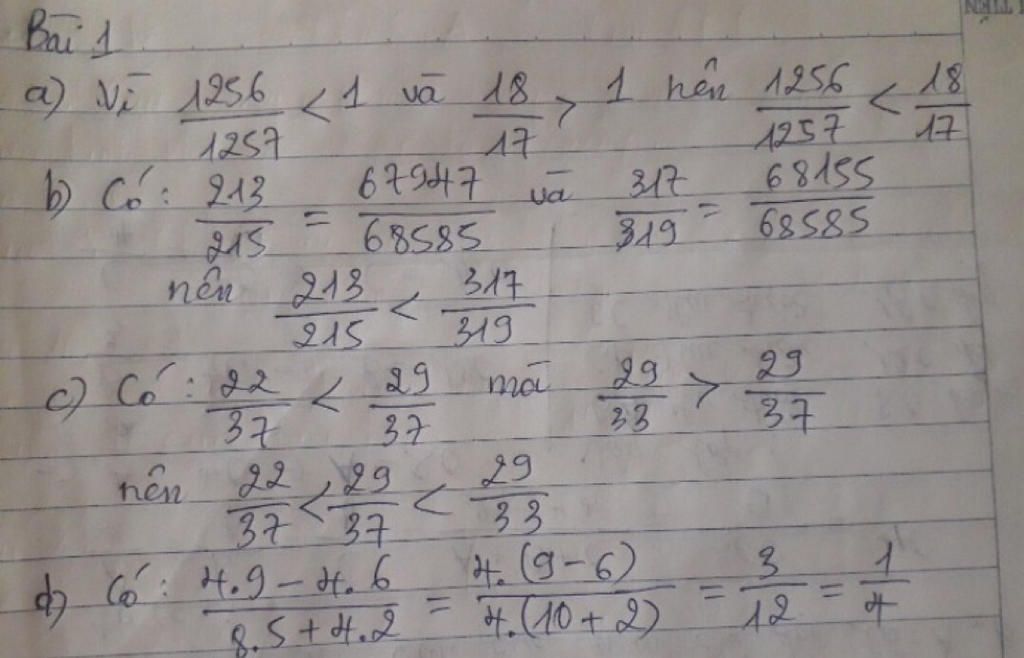 Bài 1
a) Vì 1256/1257 < 1 và 18/17 > 1 nên 1256/1257 < 18/17
b) Có: 213/215 = 67947/68585 và 317/319 = 68155/68585
nên 213/215 < 317/319
c) Có: 22/37 < 29/37 mà 29/33 > 29/37
nên 22/37 < 29/37 < 29/33
d) Có: (4.9 - 4.6)/(8.5 + 4.2) = 4.(9 - 6)/4.(10 + 2) = 3/12 = 1/4